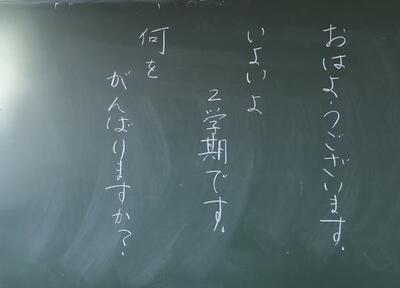 おはようございます。
いよいよ
2学期です。
何を
がんばりますか?